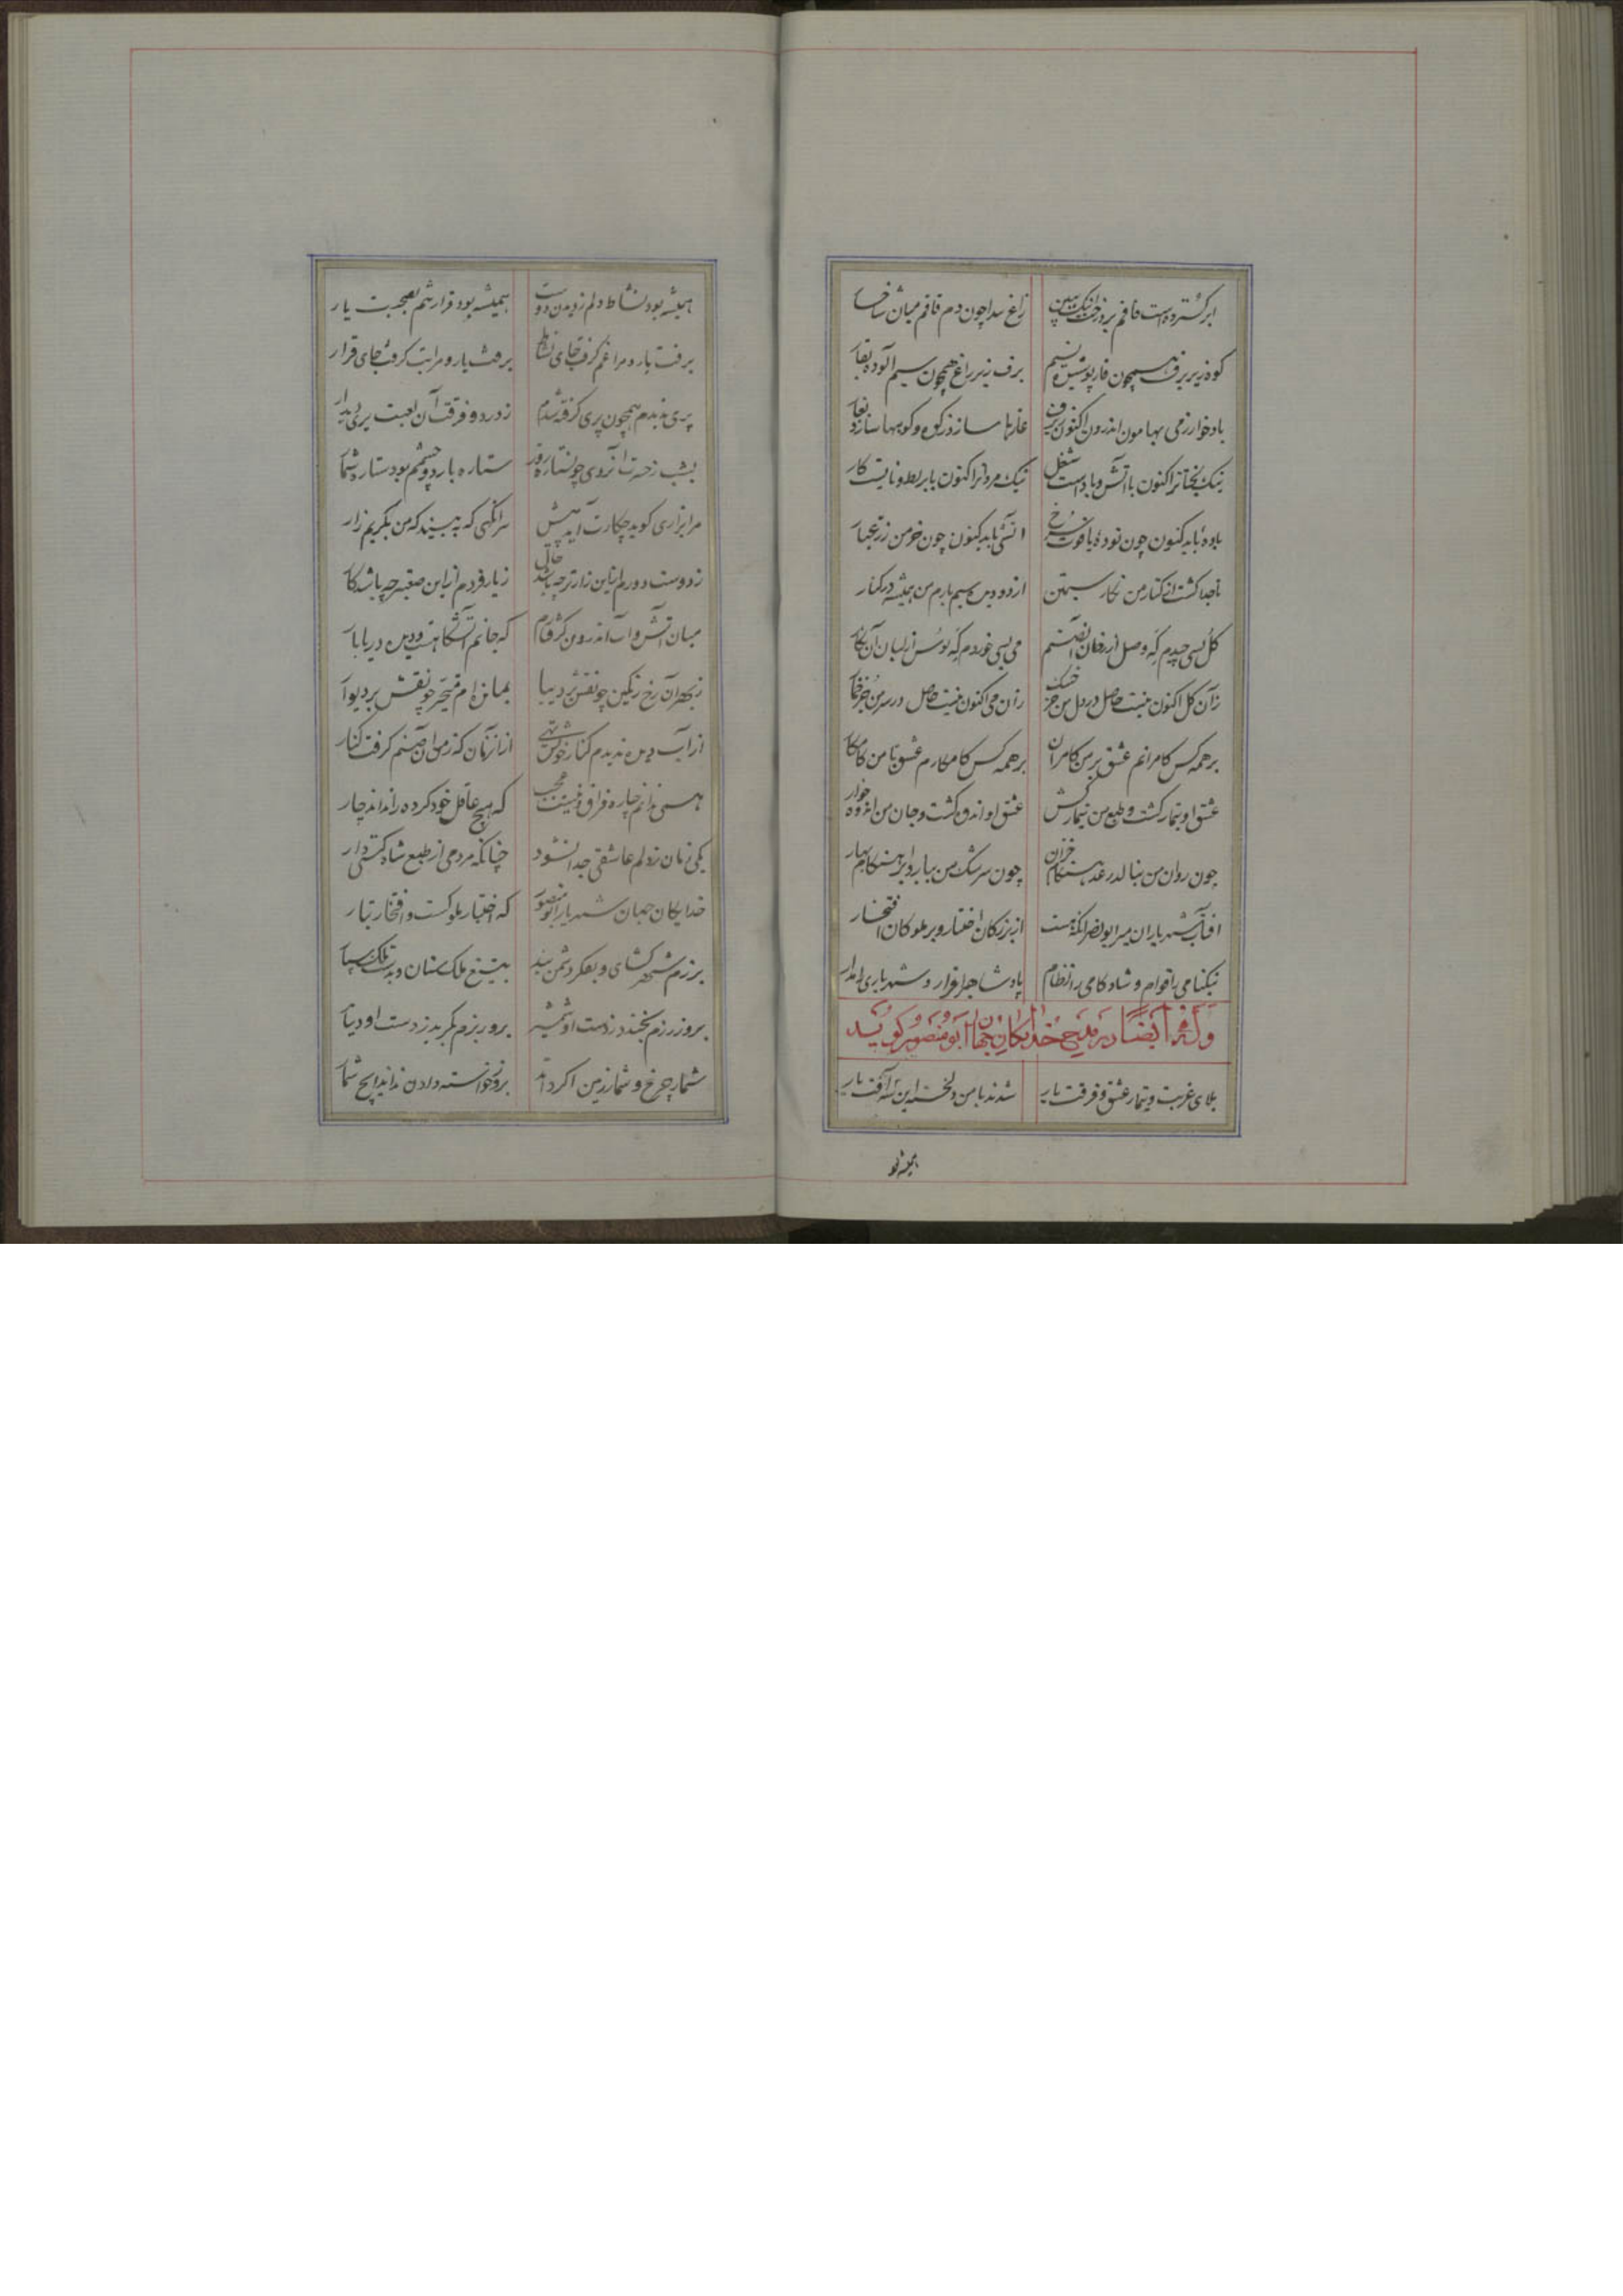 ابر گسترده است قاقم بر درختان نیک بین زاغ پیدا چون دم قاقم میان شاخسار
کوه زیر برف همچون قار پوشیده بسیم برف زیر زاغ همچون سیم آلوده بقار
باد خوارزمی بهامون اندرون اکنون ز برف غارها سازد ز کوه و کوهها سازد ز غار
نیک بختانرا کنون با آتش و باده است شغل نیک مردانرا کنون با بربط و نایست کار
باده باید کنون چون توده یاقوت سرخ آتشی باید کنون چون خرمن زر عیار
تا جدا گشت از کنار من نگار سیمتن از دو دیده سیم بارم من همیشه در کنار
گل بسی چیدم که وصل از رخان آن صنم می بسی خوردم که بوس از لبان آن نگار
زان گل اکنون نیست حاصل در دل من جز خسک زان می اکنون نیست حاصل در سر من جز خمار
بر همه کس کامرانم عشق بر من کامران بر همه کس کامکارم عشق با من کامکار
عشق او تیمار گشت و طبع من تیمارکش عشق او اندوه گشت و جان من اندوه خوار
چون روان من بنالد رعد هنگام خزان چون سرشک من ببارد ابر هنگام بهار
آفتاب شهریاران میر ابونصر آنکه هست از بزرگان اختیار و بر ملوکان افتخار
نیکنامی را قوام و شادکامی را نظام پادشاهی را قرار و شهریاری را مدار
وله ایضا در مدح خدایگان جهان ابو منصور گوید
بلای غربت و تیمار عشق و فرقت یار شدند با من دلخسته این سه آفت یار
همیشه بو
همیشه بود نشاط دلم ز دیدن دوست همیشه بود قرار تنم بصحبت یار
برفت یار و مرا غم گرفت جای نشاط برفت یار و مرا تب گرفت جای قرار
پری ندیدم همچون پری گرفته شدم ز درد و فرقت آن لعبت پری دیدار
بشب ز حسرت آن روی چون ستاره روز ستاره بارد و چشمم بود ستاره شمار
مرا بزاری گوید چکارت آید پیش هر آنگهی که ببیند که من بگریم زار
ز دوست دورم ازین زارتر چه باشد حال ز یار فردم از این صعبتر چه باشد کار
میان آتش و آب اندرون گرفتارم که جانم آتشگاهست و دیده دریابار
ز بهر آن رخ رنگین چو نقش بر دیبا بمانده ام متحیر چو نقش بر دیوار
از آب دیده ندیدم کنار خویش تهی از آن زمان که ز من آن صنم گرفت کنار
همی ندانم چاره فراق و نیست عجب که هیچ عاقل خود کرده را نداند چار
یکی زمان ز دلم عاشقی جدا نشود چنانکه مردمی از طبع شاه گیتی دار
خدایگان جهان شهریار ابو منصور که اختیار ملوکست و افتخار تبار
برزم شهر گشای و بعکر دشمن بند بتیغ ملک ستان و بدست ملک سپار
بروز رزم بخندد ز دست او شمشیر بروز بزم بگرید ز دست او دینار
شمار چرخ و شمار زمین اگر داند بروز خواسته دادن نداند ایچ شمار